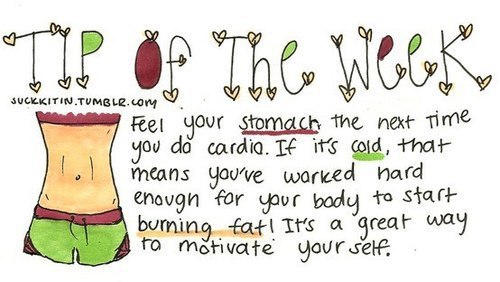 TiP of The Week
SUCKKITIN.TUMBLR.com
Feel your stomach the next time
you do cardio. If it's cold, that
means you've worked hard
enough for your body to start
burning fat! It's a great way
to motivate your self.